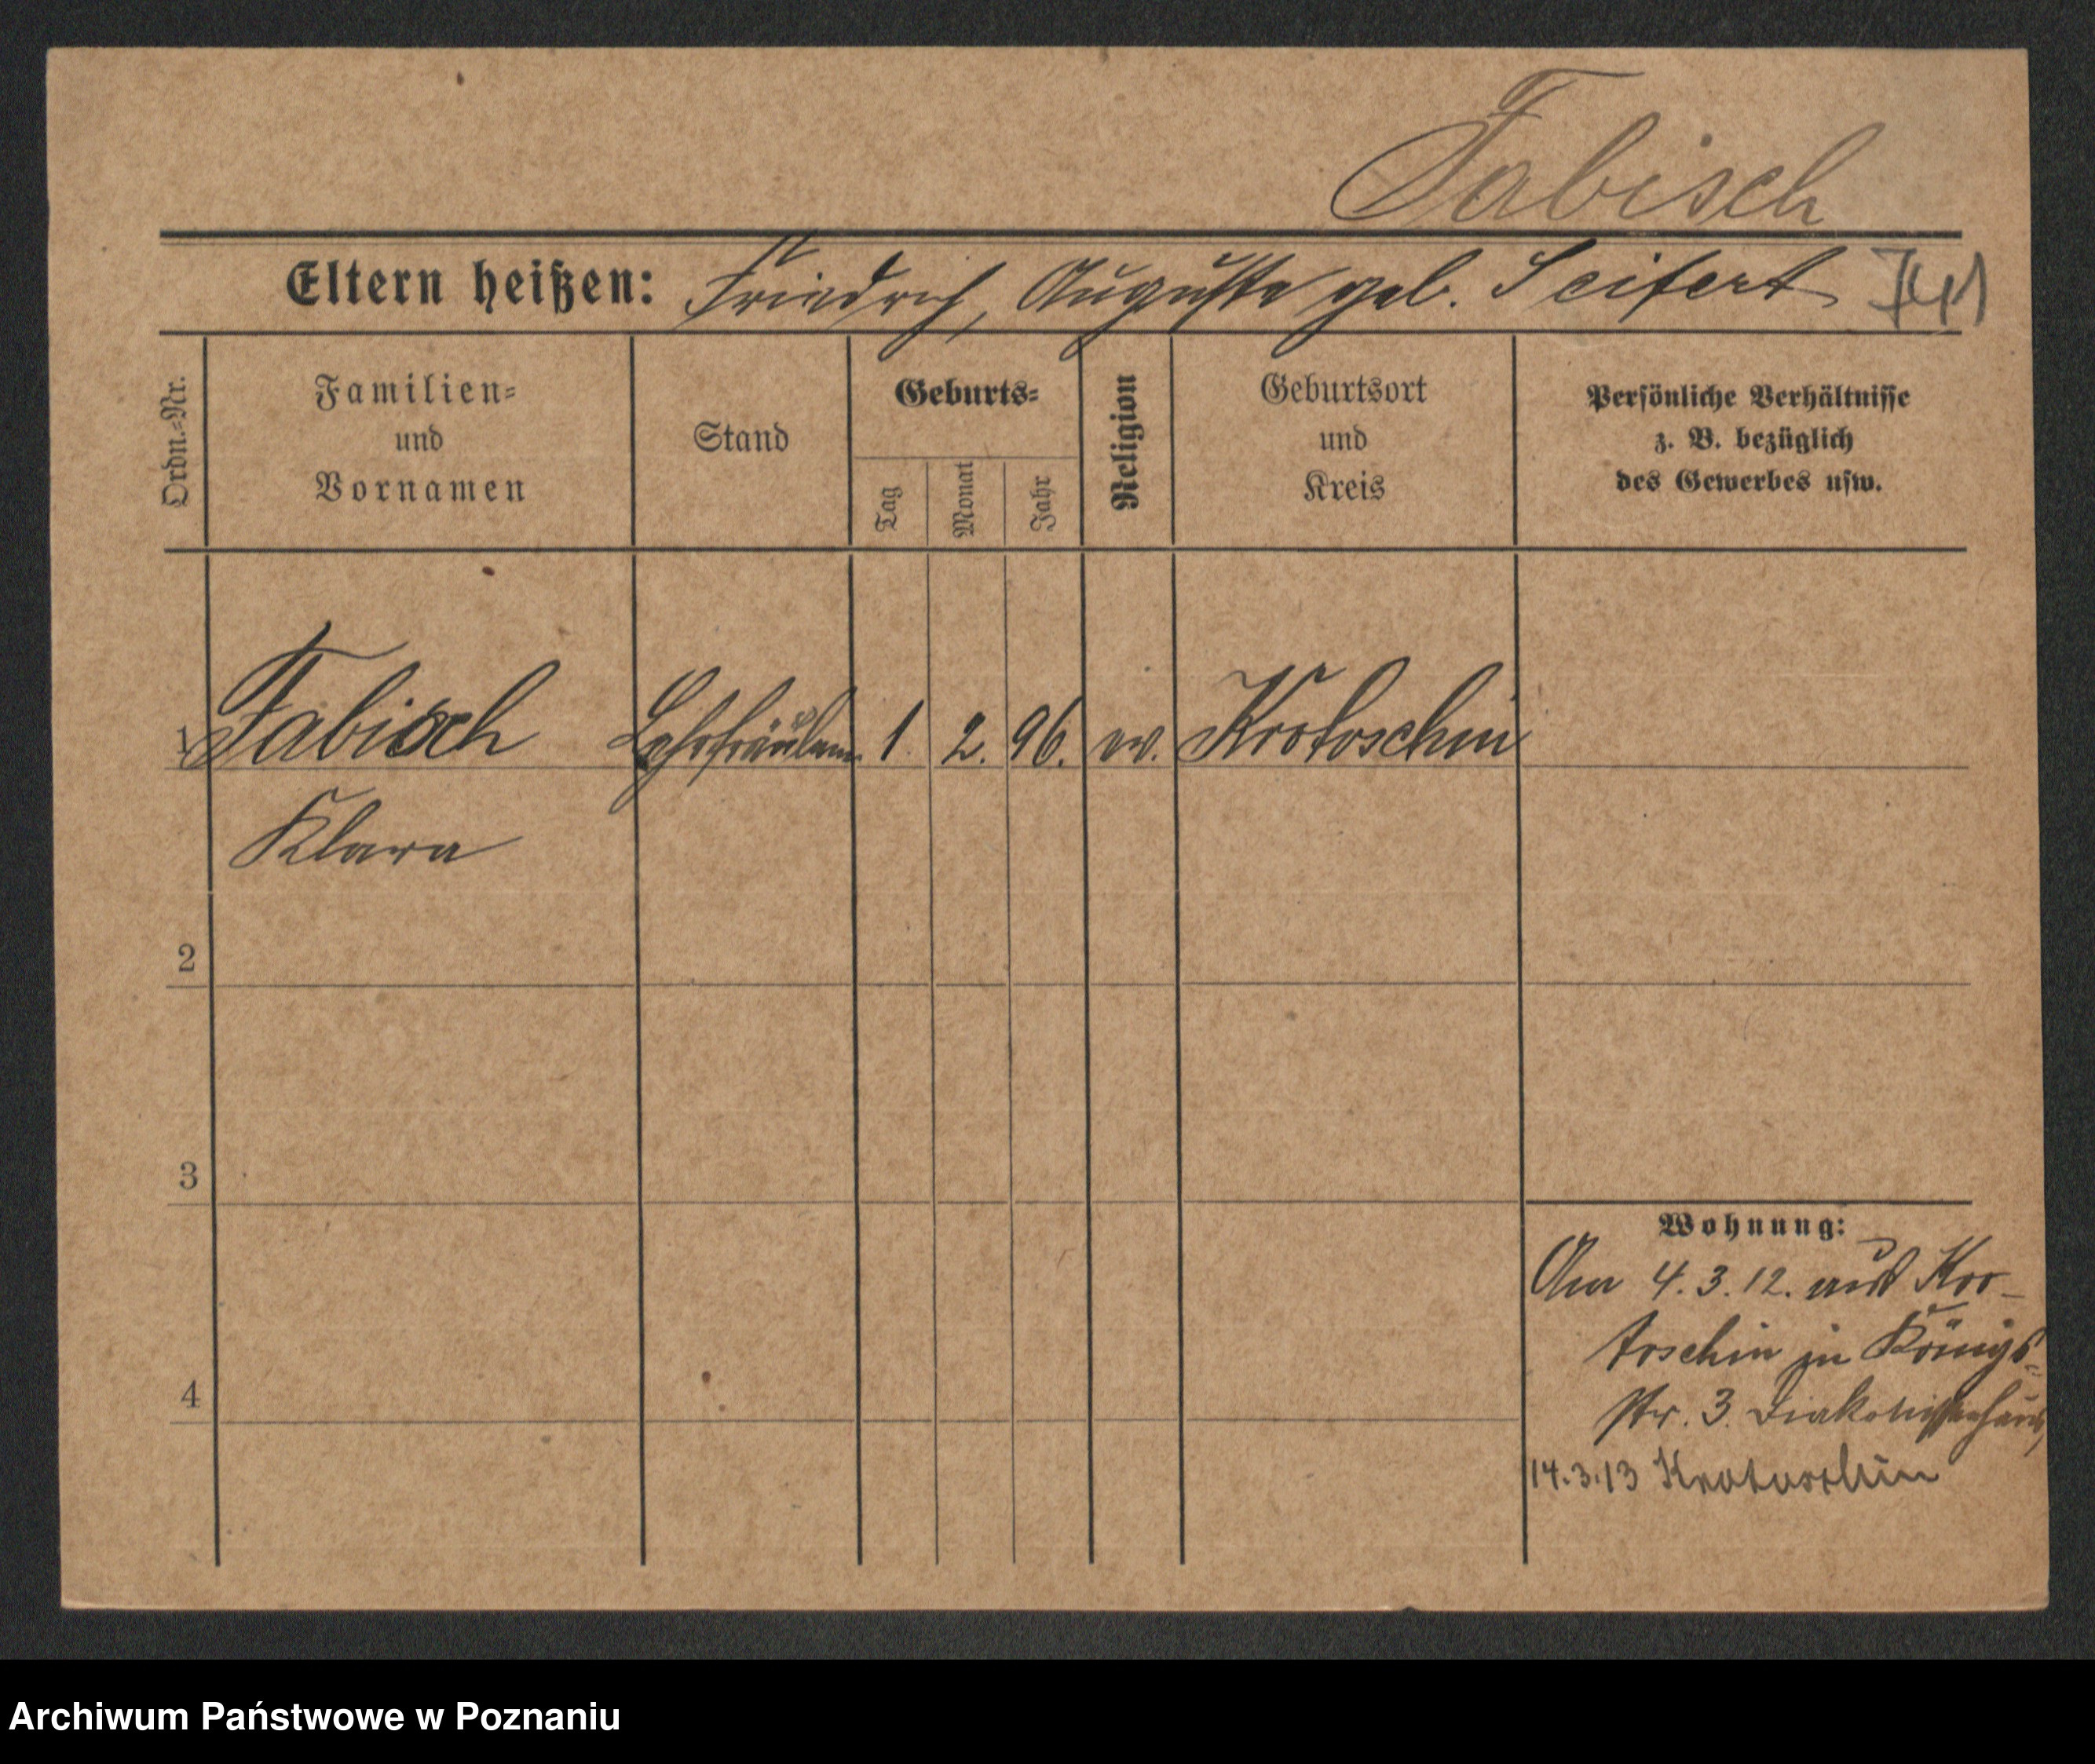 Fabisch
Eltern heißen: Friedrich, Auguste geb. Seifert 741
Ordn.-Nr.
Familien-
und
Vornamen
Stand
Geburts-
Tag
Monat
Jahr
Religion
Geburtsort
und
Kreis
Persönliche Verhältnisse
z. B. bezüglich
des Gewerbes usw.
1 Fabisch Lehrfräulein 1. 2. 96. ev. Krotoschin
Klara
2
3
4
Wohnung:
Am 4.3.12. aus Kro-
toschin in Königs-
str. 3. Diakonissenhaus,
14.3.13 Krotoschin
Archiwum Państwowe w Poznaniu